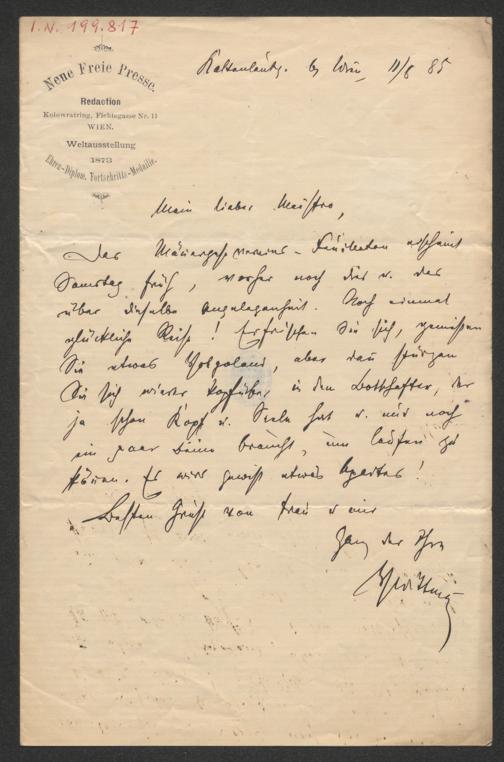 I. N. 199.817
Neue Freie Presse.
Redaction
Kolowratring, Fichtegasse Nr. 11
WIEN.
Weltausstellung
1873
Ehren-Diplom, Fortschritts-Medaille.
Kaltenleutg. b/ Wien, 11/6 85
Mein lieber Maestro,
Das Männergesangvereins-Feuilleton erscheint
Samstag früh, vorher noch das v. der
über dieselbe Angelegenheit. Noch einmal
glückliche Reise! Erfrischen Sie sich, genießen
Sie etwas Helgoland, aber dann stürzen
Sie sich wieder kopfüber in den Botthafter, der
ja schon Kopf u. Seele hat u. nur noch
ein paar Beine braucht, um laufen zu
können. Es wird gewiß etwas Apartes!
Besten Gruß von Frau u mir
Ganz der Ihre